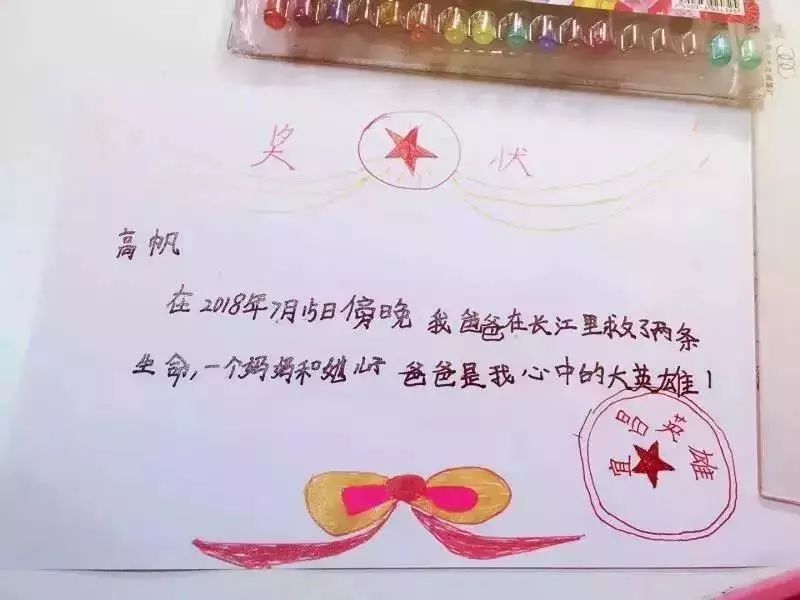 奖 状
高帆
在2018年7月15日傍晚 我爸爸在长江里救了两条
生命,一个妈妈和她儿子 爸爸是我心中的大英雄!
宜昌英雄